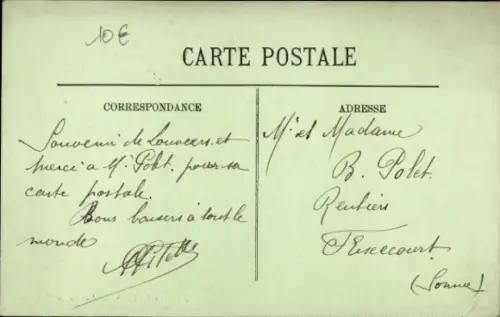 10€
CARTE POSTALE
CORRESPONDANCE
Souvenir de Louviers et
merci à Mr Polet pour sa
carte postale.
Bons baisers à tout le
monde
ADRESSE
Mr et Madame
B. Polet
Rentiers
(Somme)